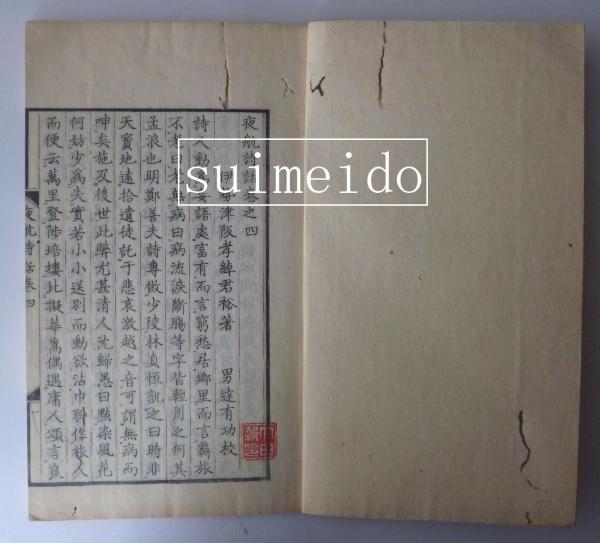 夜航詩話卷之四
伊勢津阪孝綽君裕著 男達有功校
詩人動妄語處富有而言窮愁居鄉里而言羇旅
不老曰老無病曰病流淚斷腸等字皆輕用之何其
孟浪也明鄭善夫詩專倣少陵林貞恒譏之曰時非
天寶地遠拾遺徒託于悲哀激越之音可謂無病而
呻矣施及後世此弊尤甚清人沈歸愚曰點染風花
何妨少爲失實若小小送別而動欲沾巾聊作旅人
而便云萬里登陟培塿比擬華嵩偶遇庸人頌言良
夜航詩話卷四
suimeido